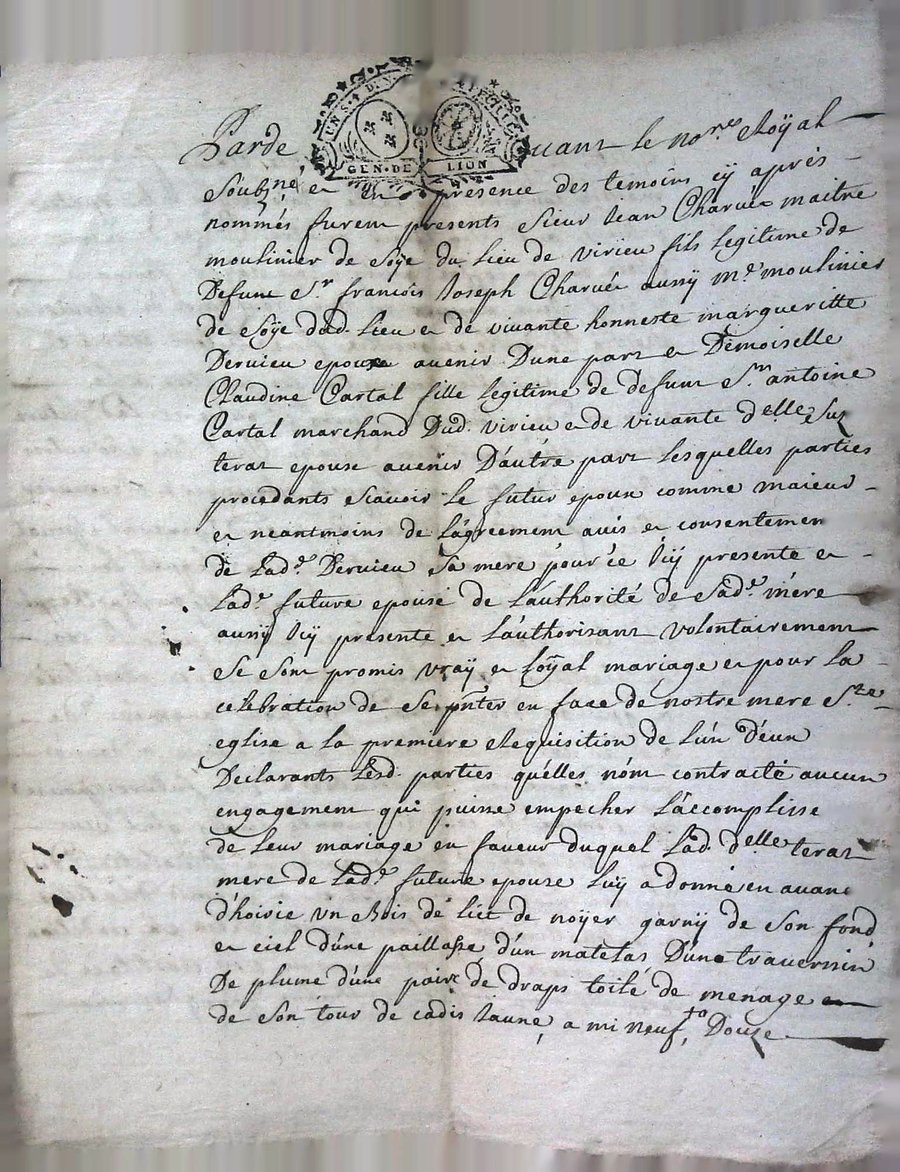 UN S. D. V.
GEN. DE LION
Parde uant le no.res Roÿal
Soubzné et en presence des temoins cÿ aprés
nommés furent presents Sieur Jean Charvée maitre
moulinier de Soÿe du Lieu de virieu fils legitime de
Defunt Sr. francois Joseph Charvée aussÿ me. moulinier
de Soÿe dud. Lieu et de vivante honneste margueritte
Dervieu epoux avenir D'une part et Demoiselle
Claudine Cartal fille legitime de defunt S.r antoine
Cartal marchand Dud. virieu et de vivante delle Suz
terat epouse avenir D'autre part lesquelles parties
procedants Scavoir le futur epoux comme maieur
et neantmoins de l'agreement avis et consentemen
de Lad.e Dervieu Sa mere pour ce Icÿ presente et
Lad.e future epouse de l'authorité de Sad.e mére
aussÿ Icÿ presente et l'authorisant volontairement
Se Sont promis vraÿ et loÿal mariage et pour la
celebration de Se pnter en face de nostre mere Ste
eglise a la premiere Requisition de l'un d'eux
Declarants Lesd. parties quélles nónt contracté aucun
engagement qui puisse empecher L'accomplisse
de Leur mariage en faveur duquel Lad. delle terat
mere de Lad.e future epouse Luÿ a donné en avanc
d'hoirie un Bois de lict de noÿer garnÿ de Son fond
et ciel d'une paillasse d'un matelas D'une traversin
De plume d'une paire de draps toile de menage et
de Son tour de cadis Jaune a mi neuf, Douze